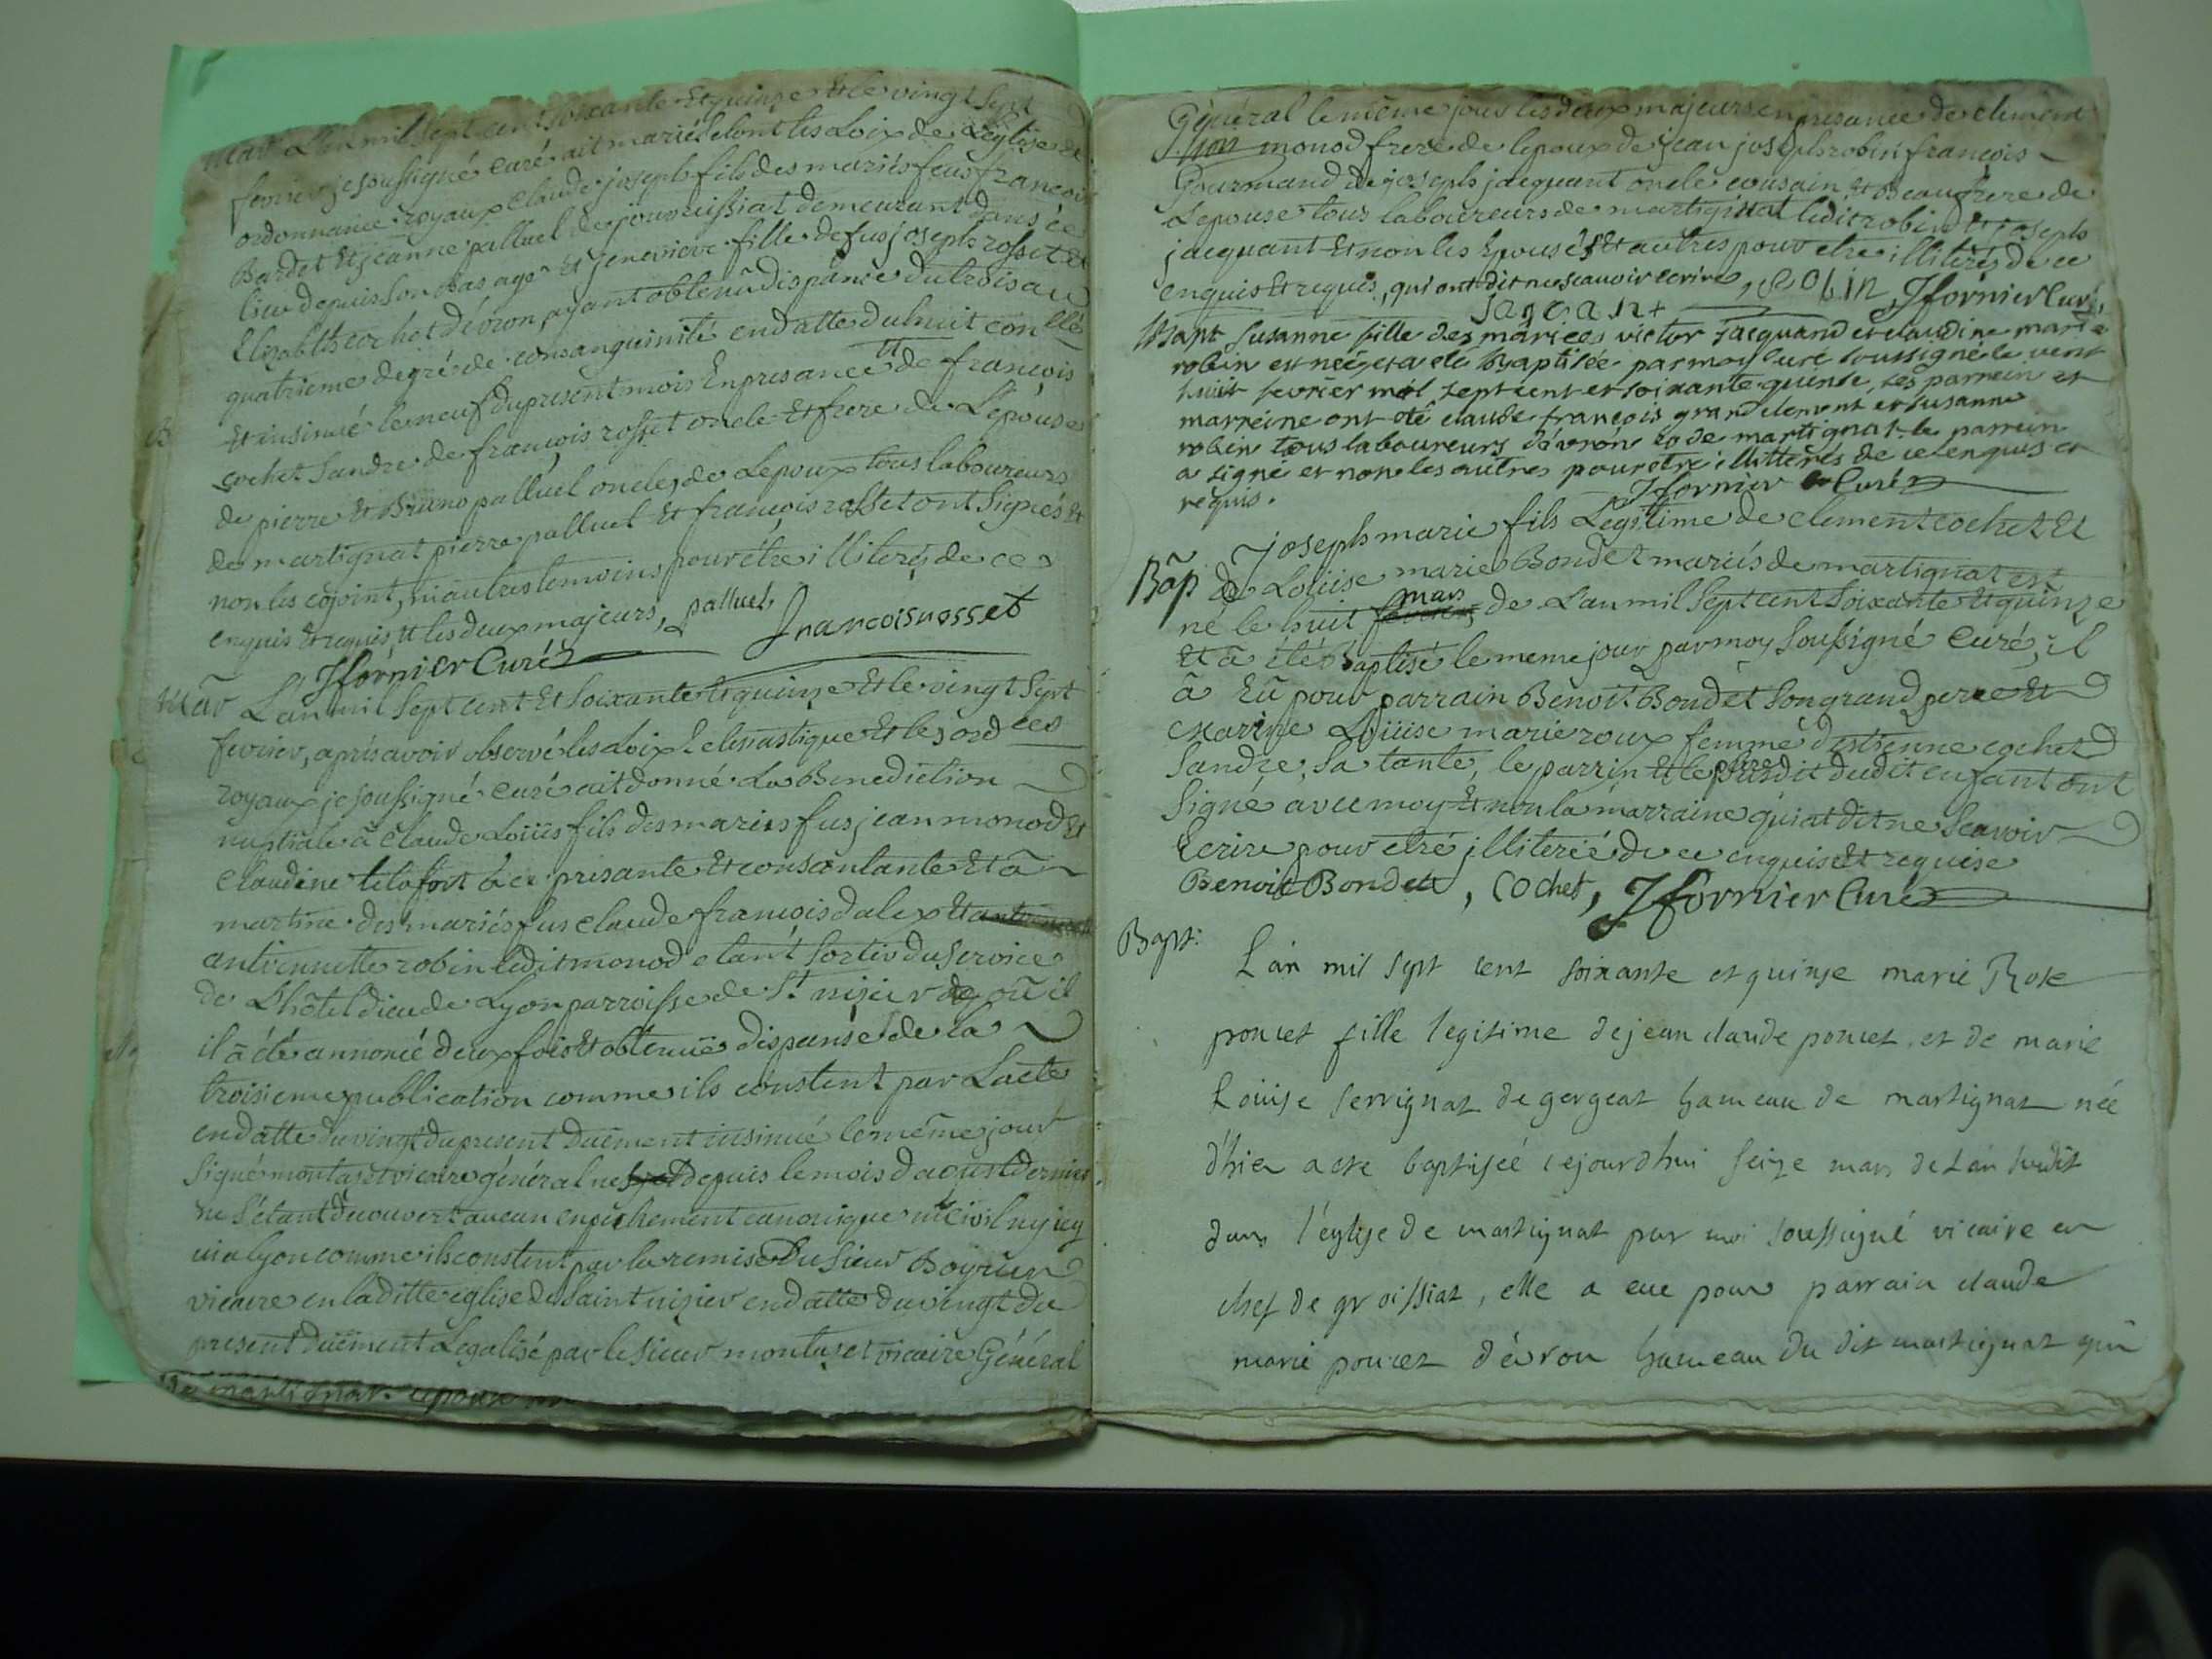 mar L'an mil sept cent soixante et quinze et le vingt sept
fevrier je soussigné curé ait mariés selont les Loix de L'eglise et
ordonnance royaux claude joseph fils des mariés feus francois
Bardet et jeanne palluel de jouvreissiat demeurant dans ce
lieu depuis son bas age et jenevieve fille de fus joseph rosset et
Elisabeth cochet d'évron, ayant obtenû dispance du trois au
quatrieme degré de consanguinité en datte du huit con llé
et insinué le neuf du present mois En presance de francois
cochet sandre de francois rosset oncle et frere de L'epouse
de pierre et Bruno palluel oncles de Lepoux tous laboureurs
de martignat pierre palluel et francois rosset ont signés et
non les cojoint, ni autres temoins pour être illiterés de ce
enquis et requis, et les deux majeurs, palluel, francois rosset
Jfornier Curé
mar L'an mil sept cent et soixante et quinze et le vingt sept
fevrier, aprés avoir observé les Loix Eclesiastique et les ord ces
royaux je soussigné curé ait donné La Benediction
nuptiale à claude Loüis fils des mariés fus jean monod et
claudine telafort à ce presante et consantante et à
martine des mariés fus claude francois dalex et
antoinnette robin ledit monod etant sortis du service
de L'hôtel dieu de Lyon parroisse de St nizier de oû il
il â été annoncé deux fois et obtenuë dispanse de la
troisieme publication comme ils constent par L'acte
en datte du vingt du present duëment insinué le même jour
signé montazet vicaire général ne depuis le mois d'aoust dernier
ne s'étant découvert aucun enpêchement canonique ni civil ny icy
ni a lyon comme ils constent par la remise du sieur Boyrier
vicaire en la ditte eglise de saint nizier en datte du vingt du
present duëment Legalisé par le sieur montazet vicaire Général
Général le même jour les deux majeurs en presance de clement
monod frere de lepoux de jean joseph robin francois
Gourmand de joseph jacquant oncle cousain et beaufrere de
Lepouse tous laboureurs de martignat ledit robin et joseph
jacquant et non les Epousés et autres pour etre illiterés de ce
enquis et requis, qui ont dit ne scauvoir ecrire, ROBIN, Jfornier Curé,
Jaqant
Bapt Susanne fille des mariees victor Jacquand et claudine marie
robin est neé et a eté baptisée par moy curé soussigné le vent
huit fevrier mil sept cent et soixante quinse, ses parrein et
marreine ont eté claude francois grand clement et susanne
robin tous laboureurs d'évron et de martignat. le parrein
a signé et non les autres pour etre illitterés de ce enquis et
requis. Jfornier Curé
Joseph marie fils Legitime de clement cochet Et
Bap de Loüise marie Bondet mariés de martignat est
né le huit mars de L'an mil sept cent soixante et quinze
Et â été Baptisé le meme jour par moy soussigné curé, il
â Eû pour parrain Benoit Bondet son grand pere et
Marine Loüise marie roux femme d'estienne cochet
sandre, sa tante, le parrin et le pere dudit enfant ont
signé avec moy Et non la marraine qui at dit ne scavoir
Ecrire pour etré illiterée de ce enquise et requise
Benoit Bondet, Cochet, Jfornier Curé
Bapt: L'an mil sept cent soixante et quinze marie Rose
poncet fille legitime de jean claude poncet, et de marie
Loüise servignat de gergeat hameau de martignat née
d'hier a ete baptiseé cejourdhui seize mars de L'an sudit
dans l'eglise de martignat par moi soussigné vicaire en
chef de groissiat, elle a eue pour parrain claude
marie poncet d'évron hameau du dit martignat qui